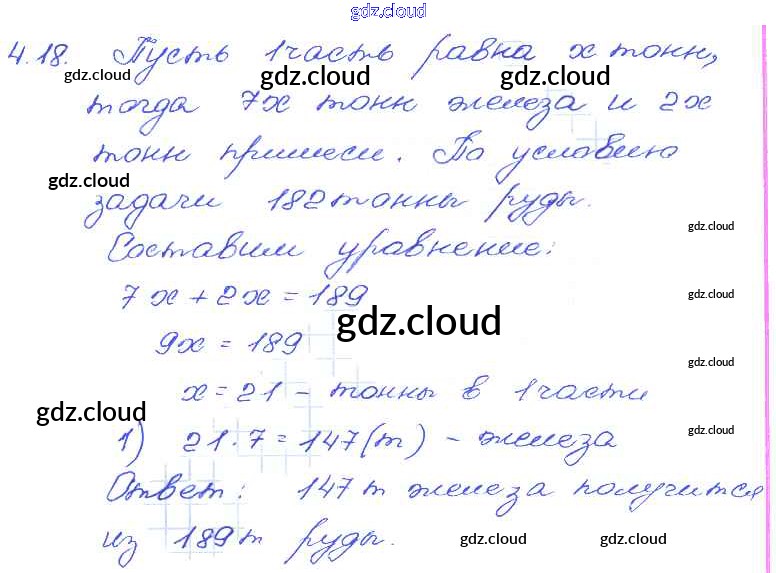 gdz.cloud
4.18. Пусть 1 часть равна x тонн,
gdz.cloud gdz.cloud gdz.cloud
тогда 7x тонн железа и 2x
тонн примеси. По условию
gdz.cloud
задачи 182 тонны руды.
gdz.cloud
Составим уравнение:
7x + 2x = 189
gdz.cloud
gdz.cloud
9x = 189
gdz.cloud
x = 21 - тонны в 1 части
gdz.cloud
1) 21 · 7 = 147 (т) - железа
gdz.cloud
Ответ: 147 т железа получится
из 189 т руды.
gdz.cloud gdz.cloud